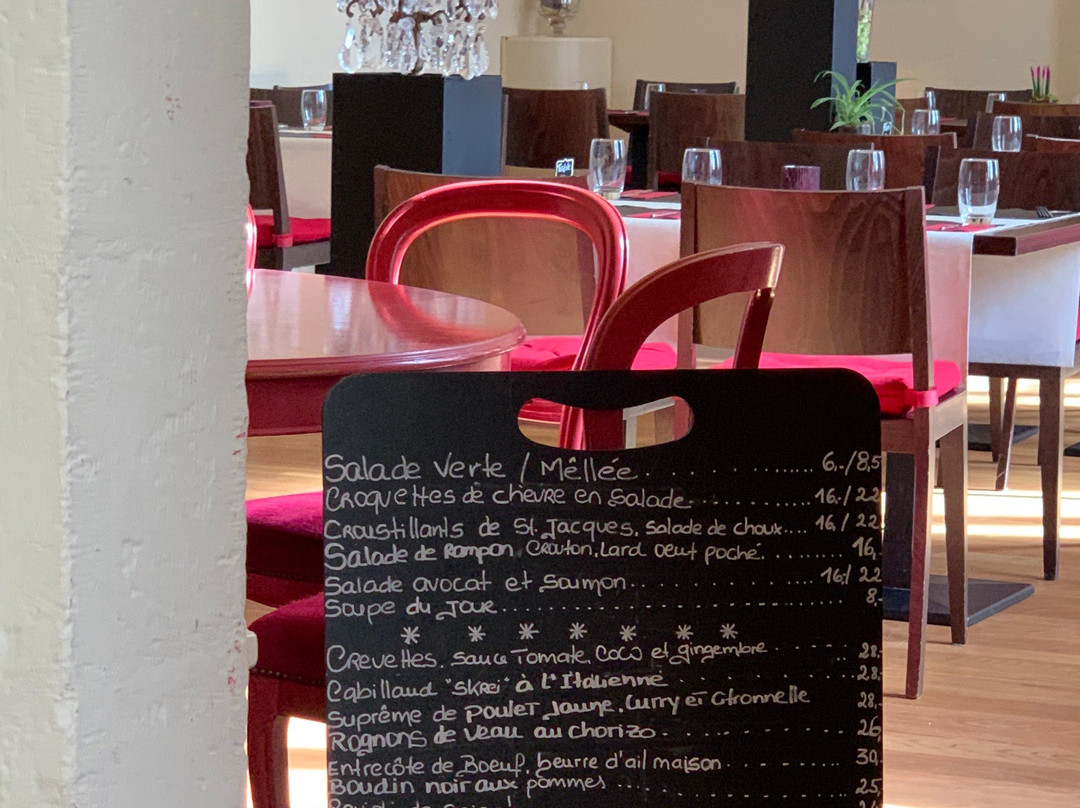 Salade Verte / Mêllée . . . . . . . . . . . . 6.-/8,5
Croquettes de chèvre en Salade. . . . . . . . . . . 16.-/ 22
Croustillants de St. Jacques, Salade de choux.... 16,/ 22
Salade de Rampon Crouton, Lard oeuf poché. . . . . . . . . 16,
Salade avocat et saumon. . . . . . . . . . . . . 16,/ 22
Soupe du Jour. . . . . . . . . . . . . . . . . . 8,-
* * * * * * *
Crevettes, sauce Tomate, Coco et gingembre . . . . . . . 28.-
Cabillaud "Skrei" à L'Italienne . . . . . . . . . . . 28,-
Suprême de Poulet Jaune, Curry et Citronnelle 28,-
Rognons de Veau au chorizo . . . . . . . . . . . . 26,
Entrecôte de Boeuf, beurre d'ail maison . . . . . . . . 30,
Boudin noir aux pommes . . . . . . . . . . . . . 25,